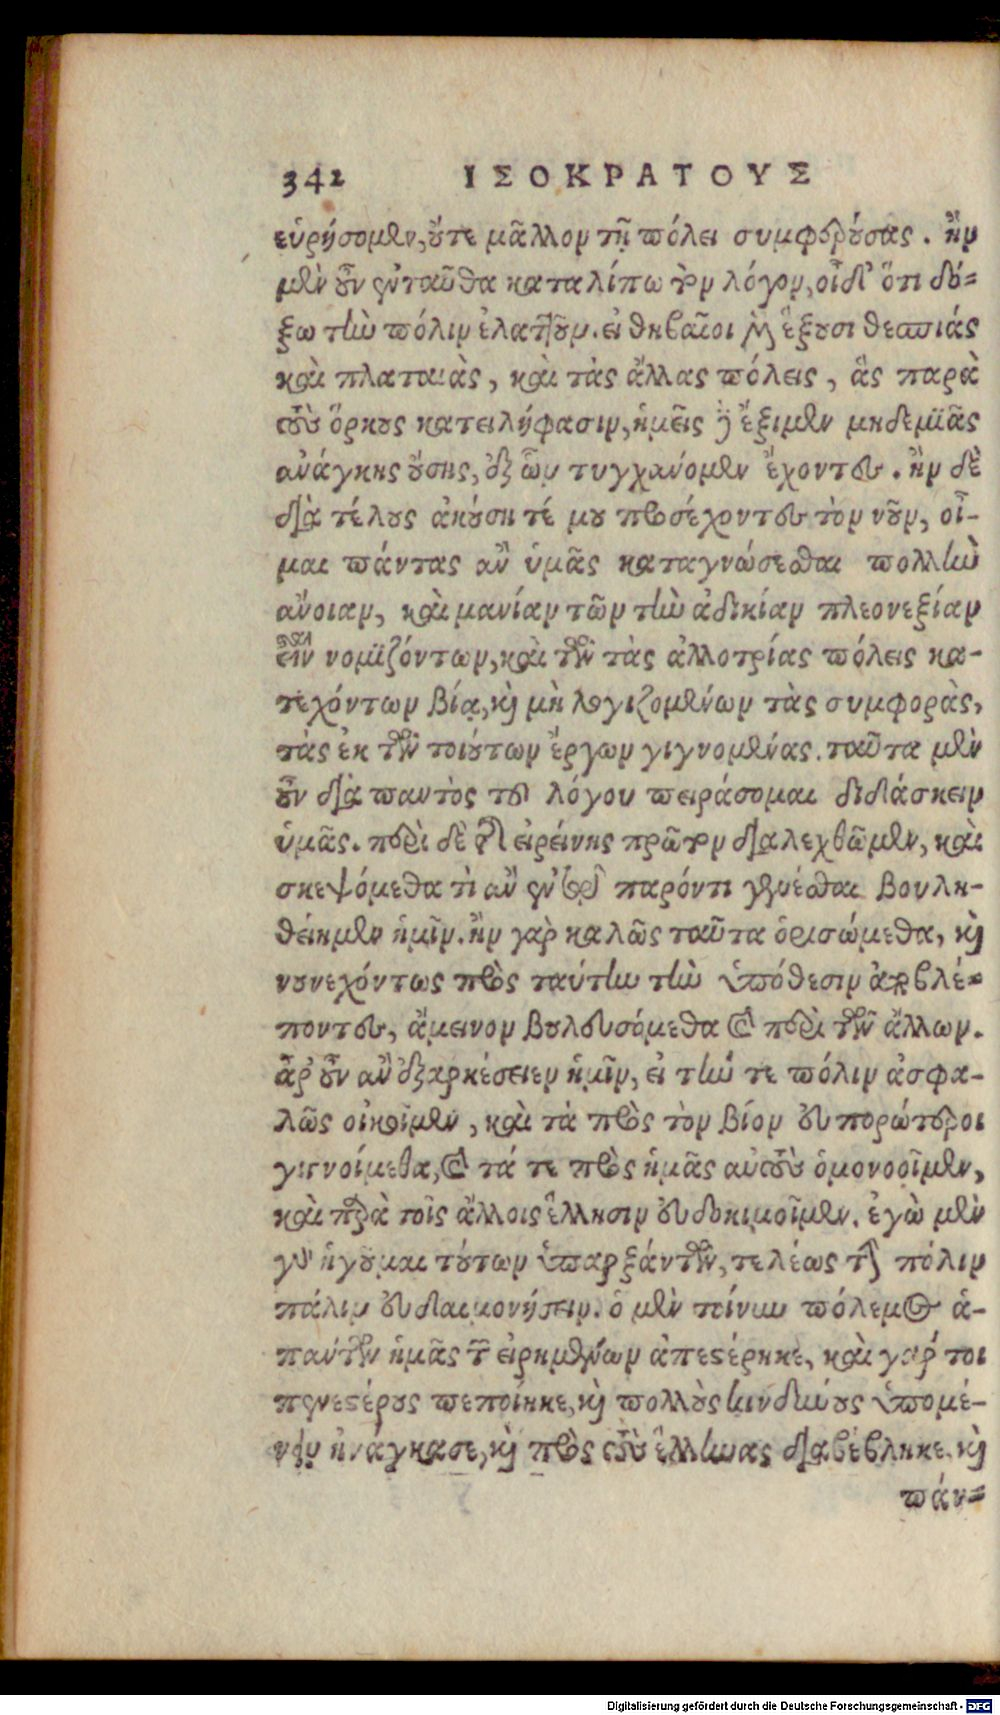 342 ΙΣΟΚΡΑΤΟΥΣ
εὑρήσομεν, οὔτε μᾶλλον τῇ πόλει συμφερούσας. ἢν
μὲν οὖν ἐνταῦθα καταλίπω τὸν λόγον, οἶδ' ὅτι δό-
ξω τὴν πόλιν ἐλαττοῦν. εἰ θηβαῖοι μὲν ἕξουσι θεσπιὰς
καὶ πλαταιὰς, καὶ τὰς ἄλλας πόλεις, ἃς παρὰ
τοὺς ὅρκους κατειλήφασιν, ἡμεῖς δὲ ἔξιμεν μηδεμιᾶς
ἀνάγκης οὔσης, ἐξ ὧν τυγχάνομεν ἔχοντες. ἢν δὲ
διὰ τέλους ἀκούσητέ μου προσέχοντες τὸν νοῦν, οἶ-
μαι πάντας ἂν ὑμᾶς καταγνώσεσθαι πολλὴν
ἄνοιαν, καὶ μανίαν τῶν τὴν ἀδικίαν πλεονεξίαν
εἶναι νομιζόντων, καὶ τῶν τὰς ἀλλοτρίας πόλεις κα-
τεχόντων βίᾳ, καὶ μὴ λογιζομένων τὰς συμφορὰς,
τὰς ἐκ τῶν τοιούτων ἔργων γιγνομένας. ταῦτα μὲν
οὖν διὰ παντὸς τοῦ λόγου πειράσομαι διδάσκειν
ὑμᾶς. περὶ δὲ τῆς εἰρήνης πρῶτον διαλεχθῶμεν, καὶ
σκεψόμεθα τὶ ἂν ἐν τῷ παρόντι γενέσθαι βουλη-
θείημεν ἡμῖν. ἢν γὰρ καλῶς ταῦτα ὁρισώμεθα, καὶ
νουνεχόντως πρὸς ταύτην τὴν ὑπόθεσιν ἀποβλέ-
ποντες, ἄμεινον βουλευσόμεθα καὶ περὶ τῶν ἄλλων.
ἆρ' οὖν ἂν ἐξαρκέσειεν ἡμῖν, εἰ τήν τε πόλιν ἀσφα-
λῶς οἰκοῖμεν, καὶ τὰ πρὸς τὸν βίον εὐπορώτεροι
γιγνοίμεθα, καὶ τά τε πρὸς ἡμᾶς αὐτοὺς ὁμονοοῖμεν,
καὶ παρὰ τοῖς ἄλλοις ἕλλησιν εὐδοκιμοῖμεν. ἐγὼ μὲν
γὰρ ἡγοῦμαι τούτων ὑπαρξάντων, τελέως τὴν πόλιν
πάλιν εὐδαιμονήσειν. ὁ μὲν τοίνυν πόλεμος ἁ-
πάντων ἡμᾶς τῶν εἰρημένων ἀπεστέρηκε, καὶ γάρ τοι
πενεστέρους πεποίηκε, καὶ πολλοὺς κινδύνους ὑπομέ-
νειν ἠνάγκασε, καὶ πρὸς τοὺς ἕλληνας διαβέβληκε, καὶ
πάν-
Digitalisierung gefördert durch die Deutsche Forschungsgemeinschaft - DFG